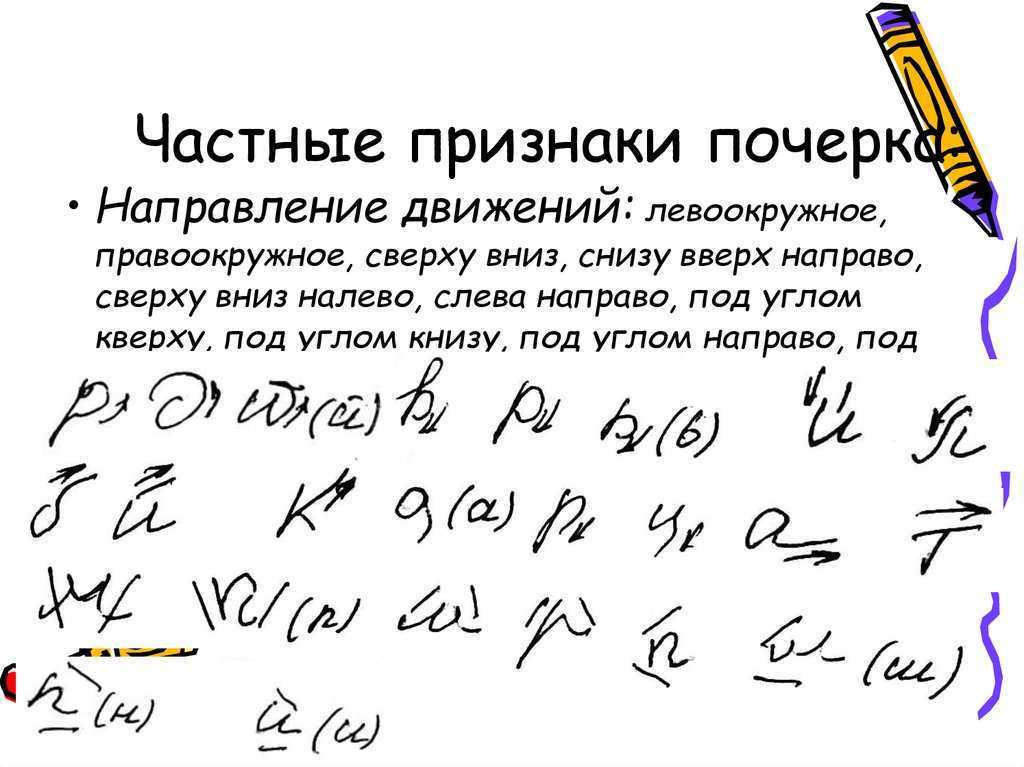 Частные признаки почерка:
• Направление движений: левоокружное,
правоокружное, сверху вниз, снизу вверх направо,
сверху вниз налево, слева направо, под углом
кверху, под углом книзу, под углом направо, под
р д т (й) в р в (в) и я
б и к а (а) р ч а т
ж п (п) ш р п ш (ш)
п (н) и (и)